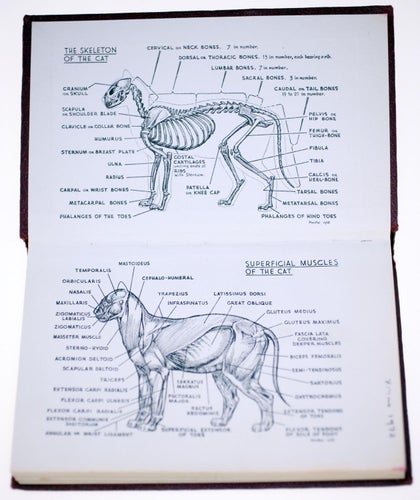 THE SKELETON
OF THE CAT
CERVICAL OR NECK BONES. 7 in number.
DORSAL OR THORACIC BONES. 13 in number, each bearing a rib.
LUMBAR BONES. 7 in number.
SACRAL BONES. 3 in number.
CAUDAL OR TAIL BONES
in number.
CRANIUM
OR SKULL
SCAPULA
OR SHOULDER BLADE
CLAVICLE OR COLLAR BONE
HUMURUS
STERNUM OR BREAST PLATE
ULNA
RADIUS
CARPAL OR WRIST BONES
METACARPAL BONES
PHALANGES OF THE TOES
COSTAL
CARTILAGES
RIBS
with Sternum.
PATELLA
OR KNEE CAP
PELVIS OR
HIP BONE
FEMUR OR
THIGH-BONE
FIBULA
TIBIA
CALCIS OR
HEEL-BONE
TARSAL BONES
METATARSAL BONES
PHALANGES OF HIND TOES
SUPERFICIAL MUSCLES
OF THE CAT
MASTOIDEUS
TEMPORALIS
CEPHALO-HUMERAL
ORBICULARIS
NASALIS
TRAPEZIUS
LATISSIMUS DORSI
MAXILLARIS
INFRASPINATUS
GREAT OBLIQUE
ZIGOMATICUS
LABIALIS
GLUTEUS MEDIUS
ZIGOMATICUS
GLUTEUS MAXIMUS
MASSETER MUSCLE
FASCIA LATA
COVERING
DEEPER MUSCLES
STERNO-HYOID
ACROMION DELTOID
BICEPS FEMORALIS
SCAPULAR DELTOID
SEMI-TENDINOSUS
TRICEPS
SERRATUS
MAGNUS
SARTORIUS
EXTENSOR CARPI RADIALIS
PECTORALIS
MAJOR
GASTROCNEMIUS
FLEXOR CARPI ULNERIS
RECTUS
ABDOMINUS
FLEXOR CARPI RADIALIS
EXTENSOR TENDONS
OF TOES
EXTENSOR COMMUNIS
DIGITORUM
SUPERFICIAL EXTENSOR
OF TOES
FLEXOR TENDONS
OF SOLE OF FOOT
ANNULAR OR WRIST LIGAMENT